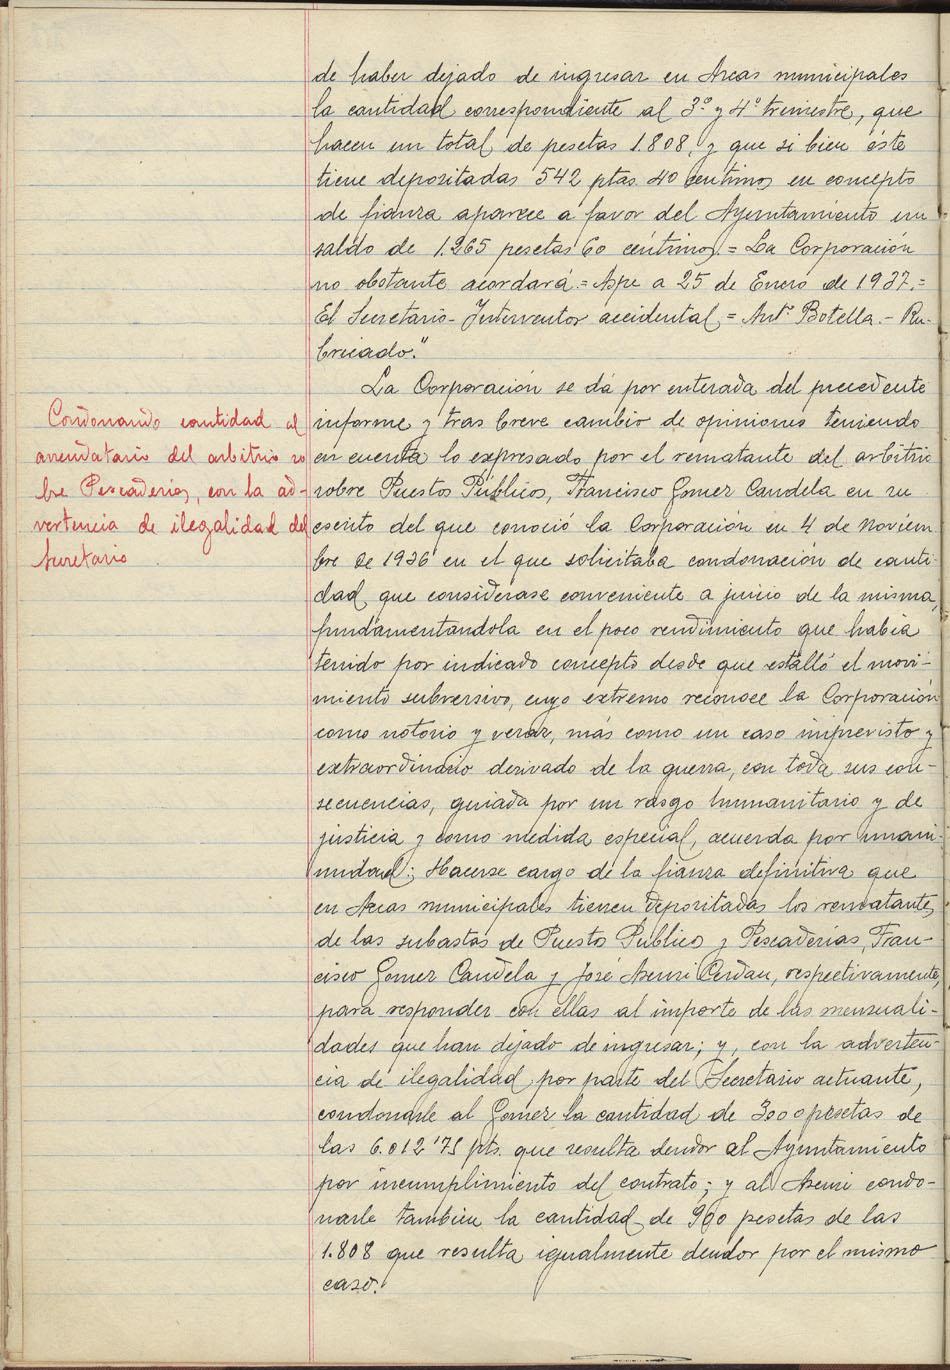 de haber dejado de ingresar en Arcas municipales
la cantidad correspondiente al 3.º y 4.º trimestre, que
hacen un total de pesetas 1.808, y que si bien éste
tiene depositadas 542 ptas 40 centimos en concepto
de fianza aparece a favor del Ayuntamiento un
saldo de 1.265 pesetas 60 céntimos. = La Corporación
no obstante acordará. = Aspe a 25 de Enero de 1937. =
El Secretario-Interventor accidental = Antº Botella. - Ru-
bricado."
La Corporación se dá por enterada del precedente
informe y tras breve cambio de opiniones teniendo
en cuenta lo expresado por el rematante del arbitrio
sobre Puestos Públicos, Francisco Gomez Candela en su
escrito del que conoció la Corporación en 4 de Noviem-
bre de 1936 en el que solicitaba condonación de canti-
dad que considerase conveniente a juicio de la misma,
fundamentandola en el poco rendimiento que había
tenido por indicado concepto desde que estalló el movi-
miento subversivo, cuyo extremo reconoce la Corporación
como notorio y veraz, más como un caso imprevisto y
extraordinario derivado de la guerra, con toda sus con-
secuencias, guiada por un rasgo humanitario y de
justicia y como medida especial, acuerda por unani-
midad: Hacerse cargo de la fianza definitiva que
en Arcas municipales tienen depositadas los rematantes
de las subastas de Puesto Publico y Pescaderías, Fran-
cisco Gomez Candela y José Asensi Cerdan, respectivamente,
para responder con ellas al importe de las mensuali-
dades que han dejado de ingresar; y, con la adverten-
cia de ilegalidad por parte del Secretario actuante,
condonarle al Gomez la cantidad de 3000 pesetas de
las 6.012'75 pts. que resulta deudor al Ayuntamiento
por incumplimiento del contrato; y al Asensi condo-
narle tambien la cantidad de 900 pesetas de las
1.808 que resulta igualmente deudor por el mismo
caso.
Condonando cantidad al
arrendatario del arbitrio so
bre Pescaderias, con la ad-
vertencia de ilegalidad del
Secretario